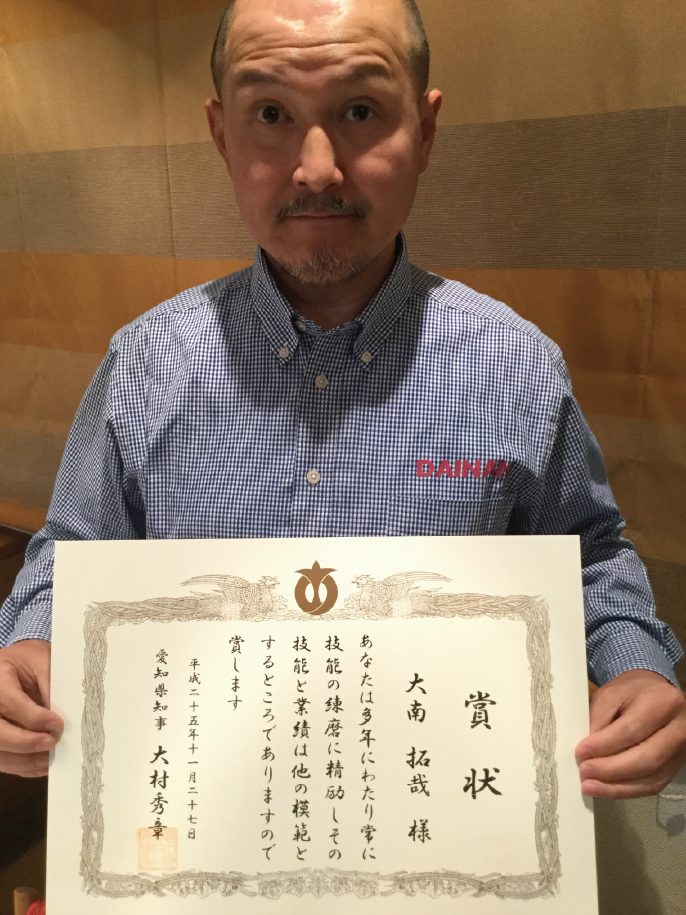 DAINAN
賞状
大南 拓哉 様
あなたは多年にわたり常に
技能の練磨に精励しその
技能と業績は他の模範と
するところでありますので
賞します
平成二十五年十一月二十七日
愛知県知事 大村秀章